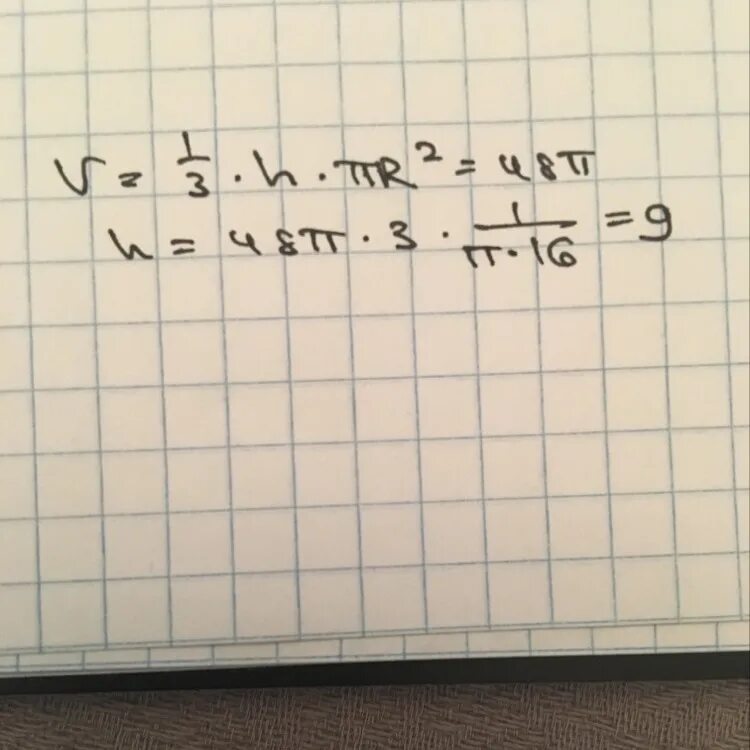 V = 1/3 · h · πR² = 48π
h = 48π · 3 · 1/(π·16) = 9